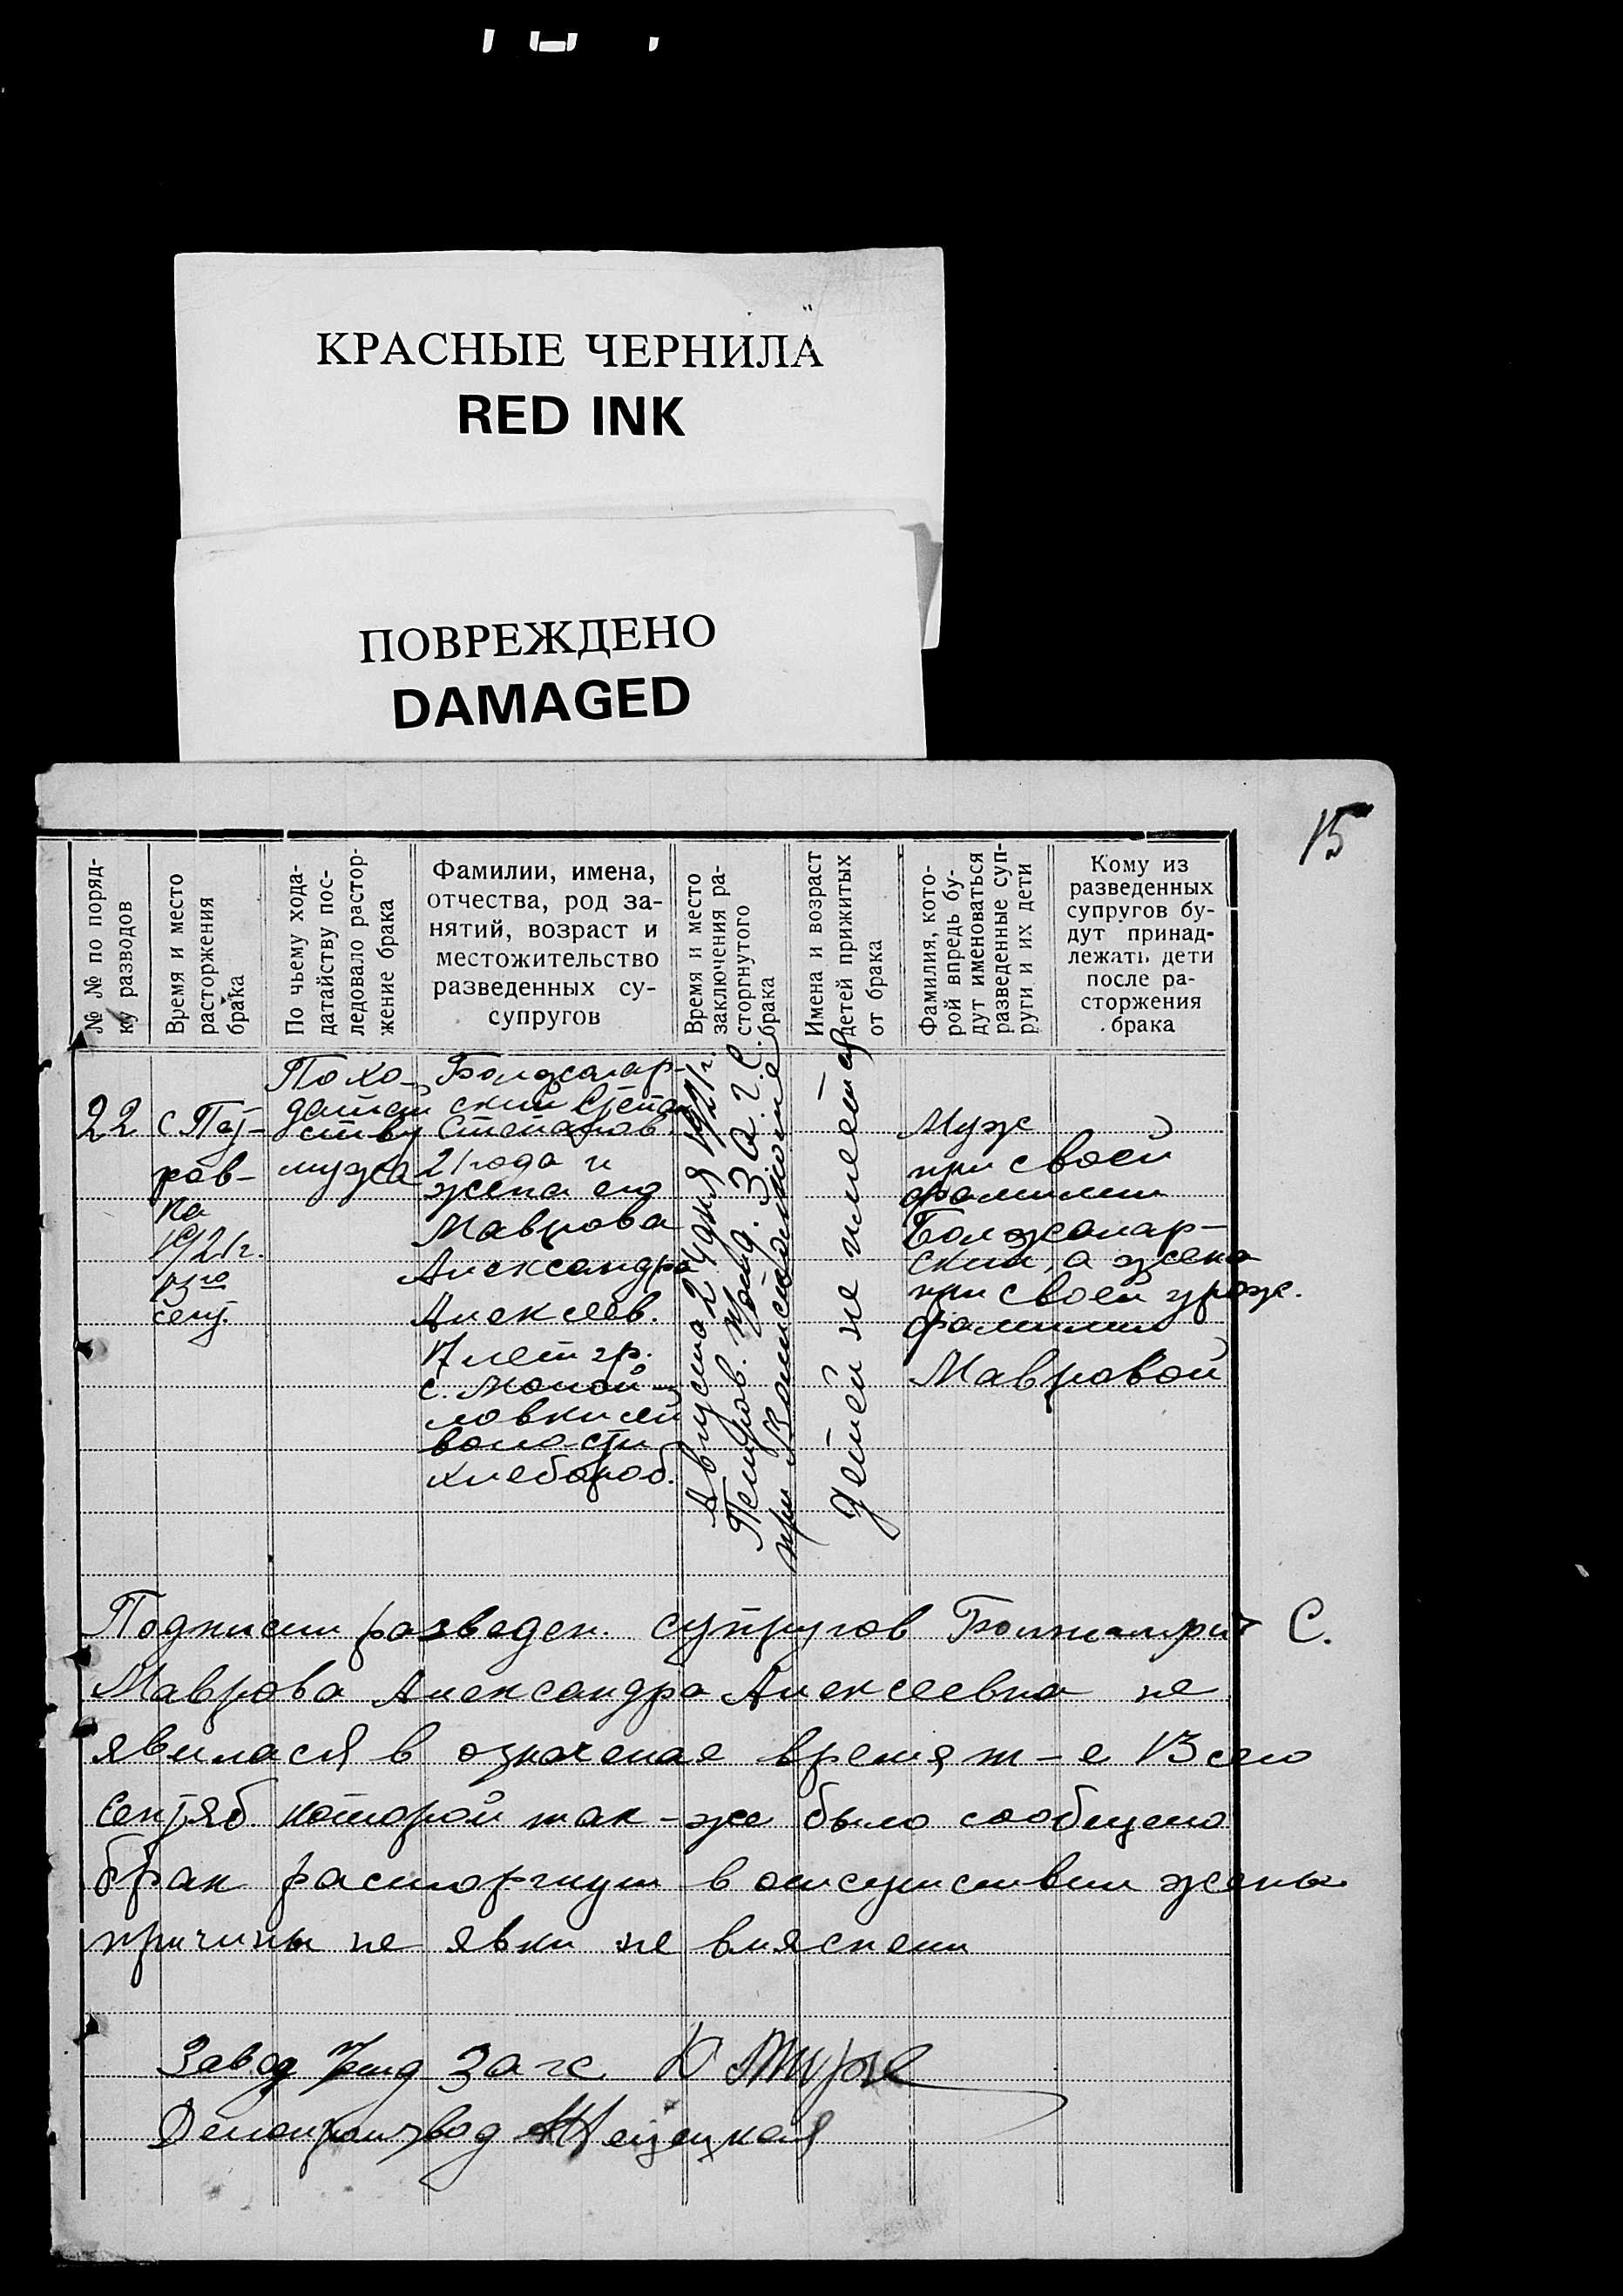 КРАСНЫЕ ЧЕРНИЛА
RED INK
ПОВРЕЖДЕНО
DAMAGED
15
№ № по поряд-
ку разводов
Время и место
расторжения
брака
По чьему хода-
датайству пос-
ледовало растор-
жение брака
Фамилии, имена,
отчества, род за-
нятий, возраст и
местожительство
разведенных су-
супругов
Время и место
заключения ра-
сторгнутого
брака
Имена и возраст
детей прижитых
от брака
Фамилия, кото-
рой впредь бу-
дут именоваться
разведенные суп-
руги и их дети
Кому из
разведенных
супругов бу-
дут принад-
лежать дети
после ра-
сторжения
брака
22
с. Пет-
ров-
ка
1921г.
13го
сент.
По хо-
датай
ству
мужа
Болжалар-
ский Степан
Степанов.
21 года и
жена его
Маврова
Александра
Алексеев.
17 лет гр.
с.
волости
хлебороб.
Августа 24 дня 1921г.
Петров. З.А.Г.С.
при
Детей не имеется
Муж
при своей
фамилии
Болжалар-
ский, а жена
при своей урож.
фамилии
Мавровой
Подписи разведен. супругов С.
Маврова Александра Алексеевна не
явилася в означеное время т-е 13 сего
сентяб. которой так-же было сообщено
брак расторгнут в отсутствии жены
причины не явки не вияснени
Завод Загс
Делопроизвод